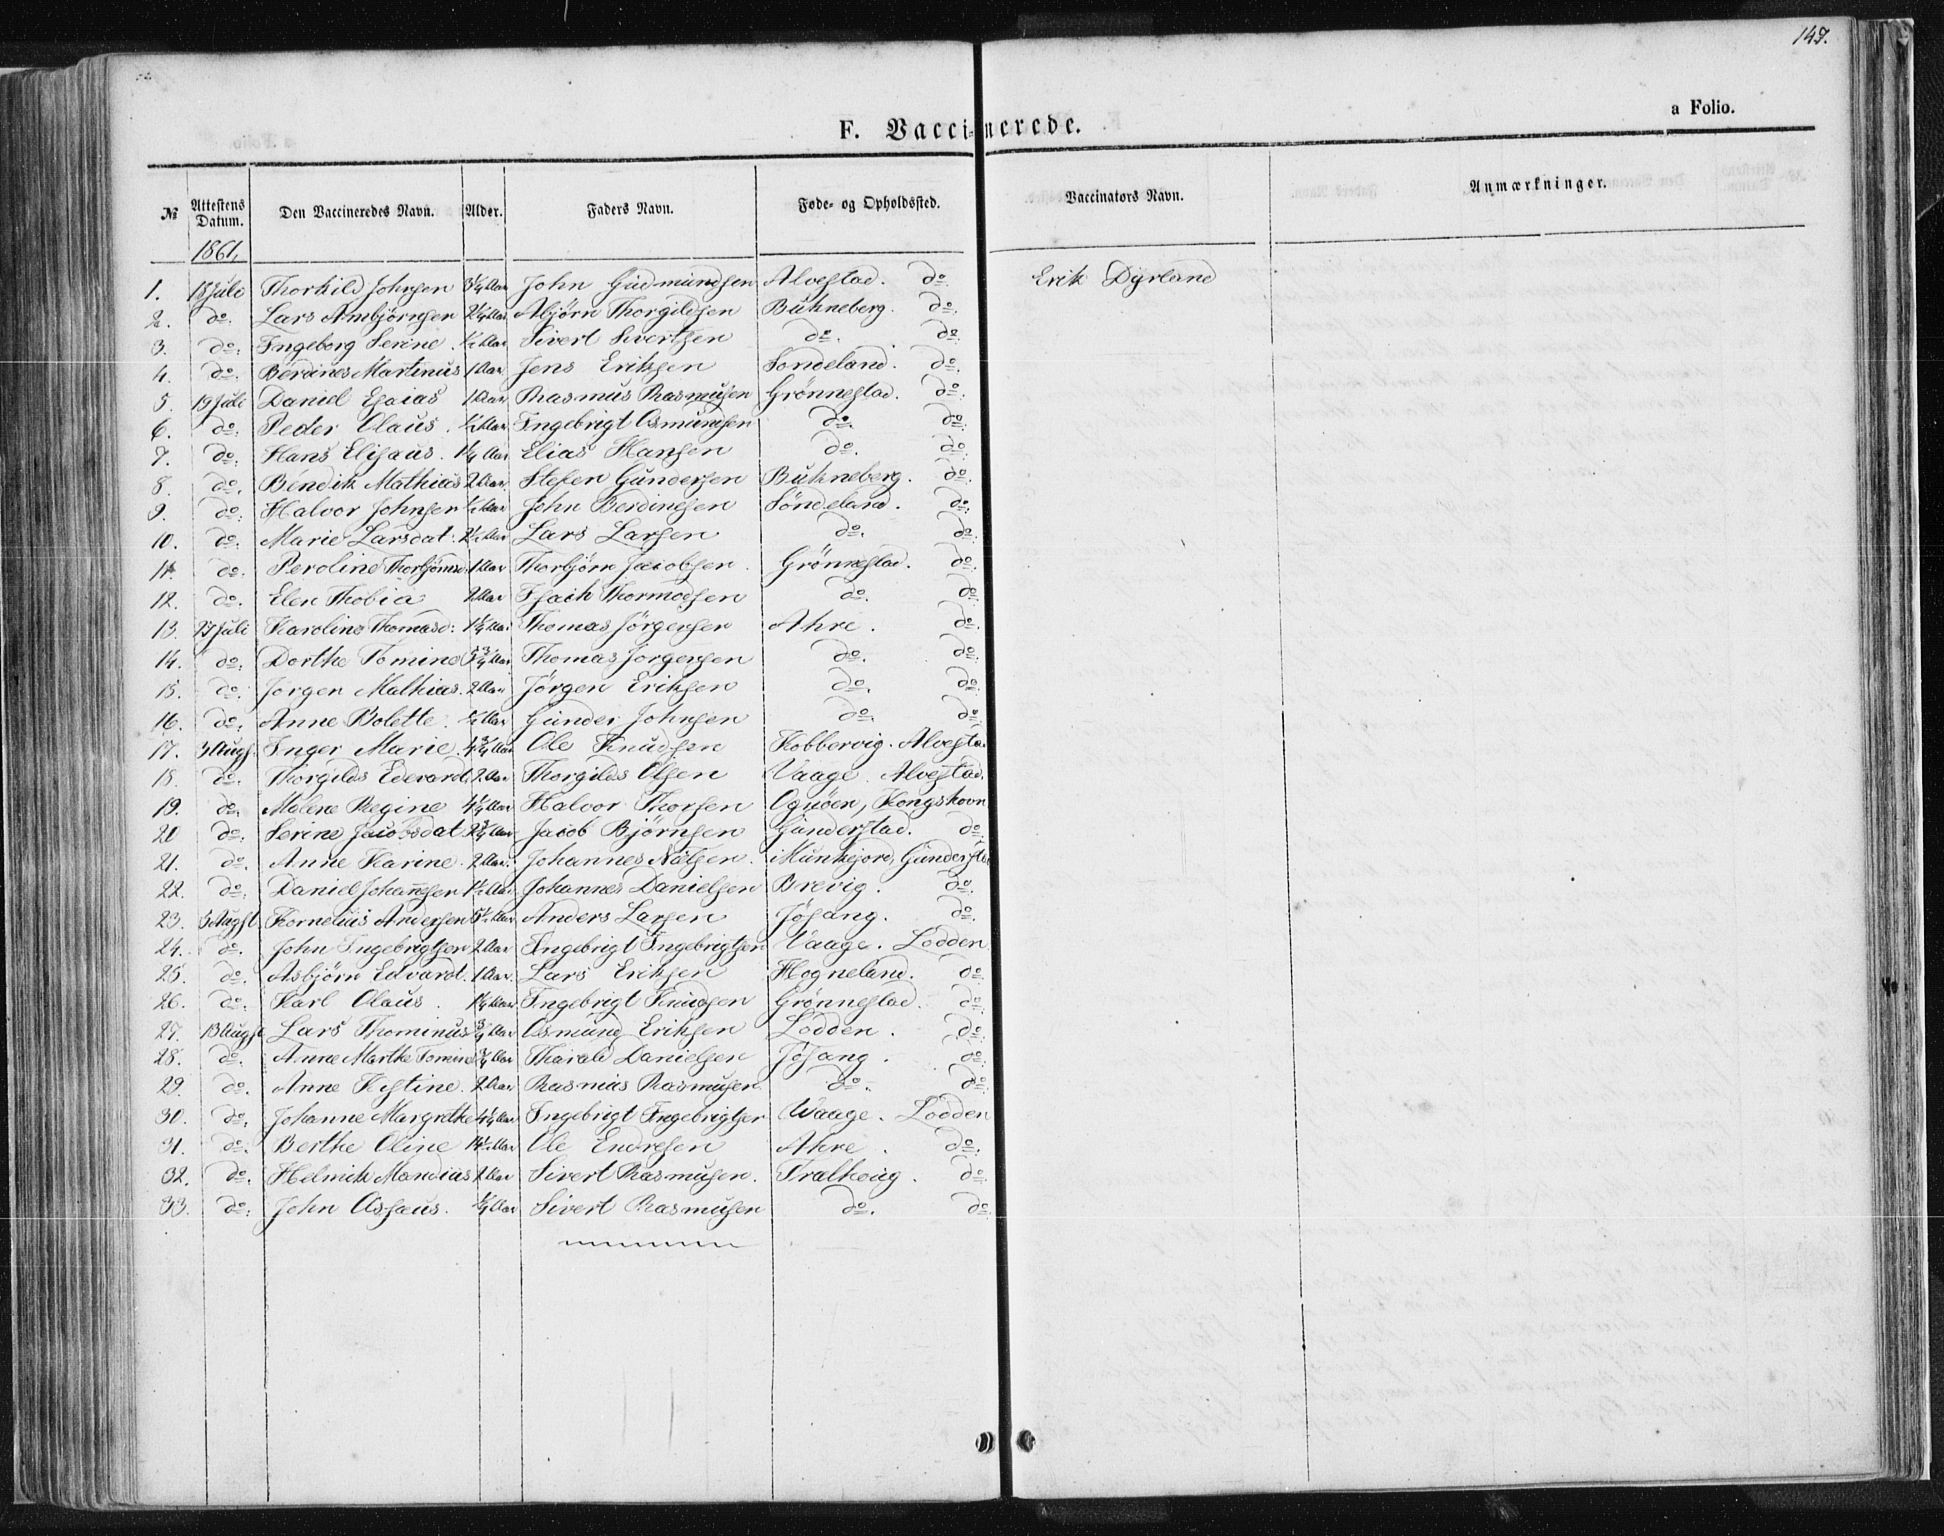 147.
a Folio.
F. Vaccinerede.
№ Attestens Datum. Den Vaccineredes Navn. Alder. Faders Navn. Føde- og Opholdssted. Vaccinators Navn. Anmærkninger.
1861,
1. 18 Juli Thorkild Johnsen 3¼ Aar John Gudmundsen Alvestad. do Erik Dyrland
2. do. Lars Ambjörnsen 2¼ Aar Abjörn Thorgildsen Bukneberg. do.
3. do. Ingeborg Serine. Aar Sivert Sivertsen do. do
4. do. Berdines Martinus 1 Aar Jens Eriksen Sondeland. do
5. 19 Juli Daniel Esaias 1 Aar Rasmus Rasmusen Grönnestad. do.
6. do. Peder Olaus. Aar Ingebrigt Osmundsen do. do.
7. do. Hans Elisaus. 1¼ Aar Elias Hansen do. do
8. do. Bendik Mathias 2 Aar Stefen Gundersen Bukneberg. do
9. do. Halvor Johnsen Aar John Berdinesen Söndeland. do.
10. do. Marie Larsdat: 2½ Aar Lars Larsen do. do.
11. do. Peroline 1 Aar Thorbjörn Jacobsen. Grönnestad. do.
12. do. Elen Thobia 2 Aar Isach Thormodsen do. do.
13. 27 Juli Karoline Thomasd: Aar Thomas Jörgensen Ahre. do.
14. do. Dorthe Tomine Aar Thomas Jörgensen do. do.
15. do. Jörgen Mathias. 2 Aar Jörgen Eriksen do. do.
16. do. Anne Bolette. Aar Gunder Johnsen do. do.
17. 3 Augs. Inger Marie. Aar Ole Knudsen Kobbervig. Alvesta
18. do. Thorgilds Edevard. 2 Aar Thorgilds Olsen Vaage. Alvestad.
19. do. Malene Regine 4¼ Aar Halvor Thorsen Ognöen, Kongshavn
20 do. Serine Jacobsdat Aar Jacob Björnsen Gunderstad. do.
21. do. Anne Karine. 2 Aar. Johannes Nilsen. Munkejord, Gunderst
22. do. Daniel Johansen 1½ Aar Johannes Danielsen Brevig. do.
23. 3 Augst. Kornelius Andersen 5½ Aar Anders Larsen Jösang. do.
24. do. John Ingebrigtsen 2 Aar Ingebrigt Ingebrigtsen Vaage. Lodden
25. do. Asbjörn Edvard. 1 Aar. Lars Eriksen Hogneland. do.
26. do. Karl Olaus. 1¼ Aar Ingebrigt Knudsen Grönnestad. do.
27. 13 Augst Lars Thominus ¾ Aar Osmund Eriksen Lodden. do.
28. do. Anne Marthe Tomine ¾ Aar Harald Danielsen Jösang. do.
29. do. Anne Kistine. 2 Aar. Rasmus Rasmusen do. do.
30. do. Johanne Margrethe 4¼ Aar Ingebrigt Ingebrigtsen Waage. Lodden
31. do. Berthe Oline 14½ Aar Ole Endresen Ahre. do.
32. do. Helmik Mandias Aar Sivert Rasmusen. Tralhoug. do.
33. do. John Asfaus. Aar Sivert Rasmusen do. do.